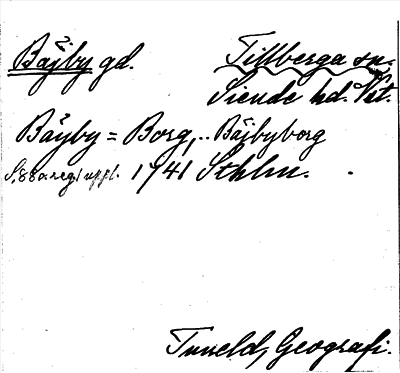 Bäjby gd. Tillberga sn.
Siende hd. Vst.
Bäyby = Borg, .. Bäjbyborg
1741 Sthlm.
Tuneld, Geografi.